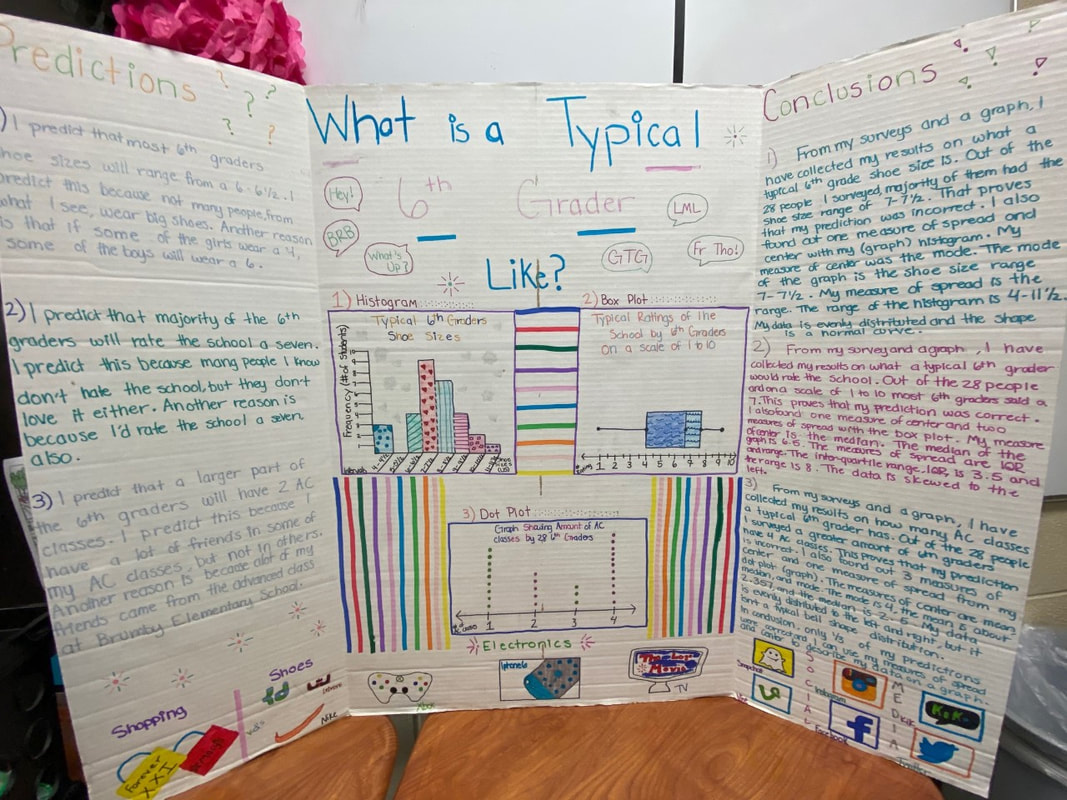 Predictions
? ? ? ? ?
I predict that most 6th graders
shoe sizes will range from a 6-6½. I
predict this because not many people, from
what I see, wear big shoes. Another reason
is that if some of the girls wear a 4,
some of the boys will wear a 6.
2) I predict that majority of the 6th
graders will rate the school a seven.
I predict this because many people I know
don't hate the school, but they don't
love it either. Another reason is
because I'd rate the school a seven
also.
3) I predict that a larger part of
the 6th graders will have 2 AC
classes. I predict this because I
have a lot of friends in some of
my AC classes, but not in others.
Another reason is because alot of my
friends came from the advanced class
at Brumby Elementary School.
Shopping
Forever
XXI
Shoes
Nike
What is a Typical
6th Grader
Like?
Hey!
BRB
What's
Up?
LML
GTG
Fr Tho!
1) Histogram
Typical 6th Graders
Shoe Sizes
Frequency (# of Students)
2) Box Plot
Typical Ratings of the
School by 6th Graders
On a scale of 1 to 10
1 2 3 4 5 6 7 8 9
3) Dot Plot
Graph Showing Amount of AC
classes by 28 6th Graders
1 2 3 4
Electronics
Xbox
Iphone6
TV
Conclusions
1) From my surveys and a graph, I
have collected my results on what a
typical 6th grade shoe size is. Out of the
28 people I surveyed, majority of them had the
shoe size range of 7-7½. That proves
that my prediction was incorrect. I also
found out one measure of spread and
center with my (graph) histogram. My
measure of center was the mode. The mode
of the graph is the shoe size range
7-7½. My measure of spread is the
range. The range of the histogram is 4-11½.
My data is evenly distributed and the shape
is a normal curve.
2) From my survey and a graph, I have
collected my results on what a typical 6th grader
would rate the school. Out of the 28 people
and on a scale of 1 to 10 most 6th graders said a
7. This proves that my prediction was correct.
I also found one measure of center and two
measures of spread with the box plot. My measure
of center is the median. The median of the
graph is 6.5. The measures of spread are IQR
and range. The inter-quartile range, IQR, is 3.5 and
the range is 8. The data is skewed to the
left.
3) From my surveys and a graph, I have
collected my results on how many AC classes
a typical 6th grader has. Out of the 28 people
I surveyed a greater amount of 6th graders
have 4 AC classes. This proves that my prediction
is incorrect. I also found out 3 measures of
center and one measure of spread from my
dot plot (graph). The measures of center are mean,
median, and mode. The mode is 4, the mean is about
2.357, and the median is 2.5. My data
is evenly distributed to the left and right, but it
isn't a typical bell shape distribution.
In conclusion, only ⅓ of my predictions
were correct and I can use my measures of spread
and center to describe my data on a graph.
SOCIAL
MEDIA
Snapchat
Instagram
Kik
KiK
Vine
Facebook
f
Twitter